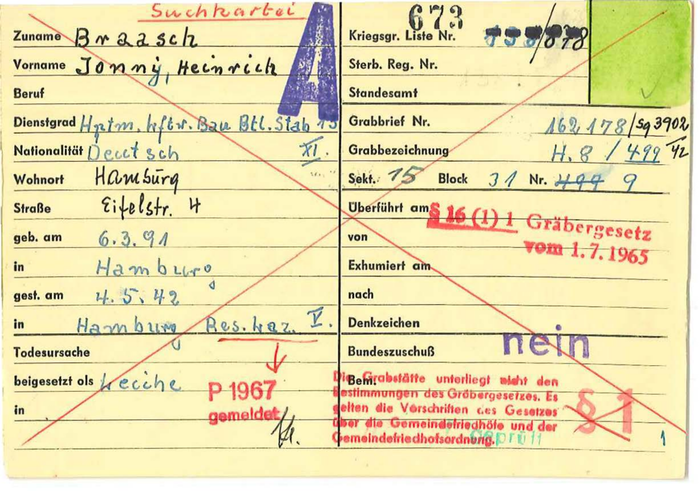 Suchkartei
A
673
Zuname Braasch
Vorname Jonny, Heinrich
Beruf
Dienstgrad Hptm. Lftw. Bau Btl. Stab 15
XI.
Nationalität Deutsch
Wohnort Hamburg
Straße Eifelstr. 4
geb. am 6.3.91
in Hamburg
gest. am 4.5.42
in Hamburg Res. Laz. V.
Todesursache
beigesetzt als Leiche
in
P 1967
gemeldet
Kriegsgr. Liste Nr. /878
Sterb. Reg. Nr.
Standesamt
Grabbrief Nr. 162178/Sg 3902
42
Grabbezeichnung H.8 / 499
Sekt. 15 Block 31 Nr. 499 9
Überführt am
§ 16 (1) 1 Gräbergesetz
vom 1.7.1965
von
Exhumiert am
nach
Denkzeichen
Bundeszuschuß nein
Bem.
Die Grabstätte unterliegt nicht den
Bestimmungen des Gräbergesetzes. Es
gelten die Vorschriften des Gesetzes
über die Gemeindefriedhöfe und der
Gemeindefriedhofsordnung.
geprüft
§ 1
1